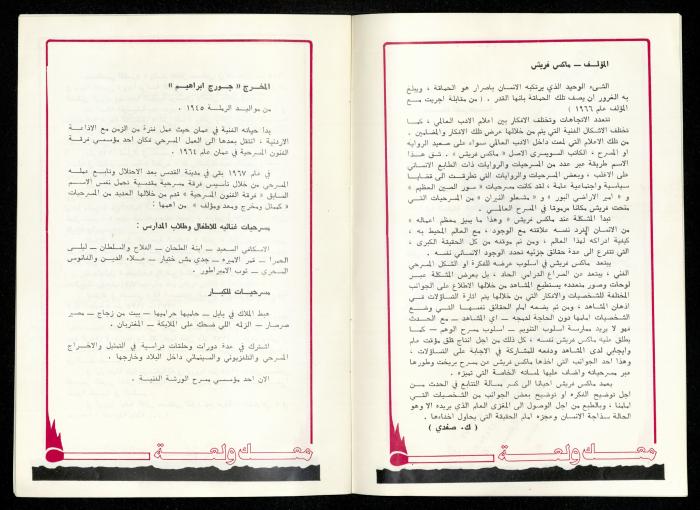 المؤلف — ماكس فريش
الشيء الوحيد الذي يرتكبه الانسان باصرار هو الحماقة ، ويبلغ
به الغرور ان يصف تلك الحماقة بانها القدر . ( من مقابلة اجريت مع
المؤلف عام ١٩٦٦ )
تتعدد الاتجاهات وتختلف الافكار بين اعلام الادب العالمي ، كما
تختلف الاشكال الفنية التي يتم من خلالها عرض تلك الافكار والمضامين .
من تلك الاعلام التي لمعت داخل الادب العالمي سواء على صعيد الرواية
او المسرح ، الكاتب السويسري الاصل « ماكس فريش » . شق هذا
الاسم طريقة عبر عدد من المسرحيات والروايات ذات الطابع الانساني
على الاغلب ، وبعض المسرحيات والروايات التي تطرقت الى قضايا
سياسية واجتماعية عامة ، لقد كانت مسرحيات « سور الصين العظيم »
و « امير الاراضي البور » و « مشعلو النيران » من المسرحيات التي
منحت فريش مكانا مرموقا في المسرح العالمي .
تبدا المشكلة عند ماكس فريش « وهذا ما يميز معظم اعماله »
من الانسان الفرد نفسه علاقته مع الوجود ، مع العالم المحيط به ،
كيفية ادراكه لهذا العالم ، ومن ثم موقفه من كل الحقيقة الكبرى ،
التي تتفرع الى عدة حقائق جزئيه تحدد الوجود الانساني نفسه .
يبتعد ماكس فريش في اسلوب عرضه للفكرة او الشكل المسرحي
الفني ، يبتعد من الصراع الدرامي الحاد ، بل يعرض المشكلة عبر
لوحات وصور متعدده يستطيع المشاهد من خلالها الاطلاع على الجوانب
المختلفة للشخصيات والافكار التي من خلالها يتم اثارة التساؤلات في
اذهان المشاهد ، ومن ثم يضعه امام الحقائق نفسها التي وضع
الشخصيات امامها دون الحاجة لدمجه — اي المشاهد — مع الحدث
فهو لا يريد ممارسة اسلوب التنويم — اسلوب مسرح الوهم — كما
يطلق عليه ماكس فريش نفسه ، كل ذلك من اجل انتاج قلق مؤقت عام
وايجابي لدى المشاهد ودفعه للمشاركة في الاجابة على التساؤلات ،
وهذا احد الجوانب التي اخذها ماكس فريش عن مسرح بريخت وطورها
عبر مسرحياته واضاف عليها لمساته الخاصة التي تميزه .
يعمد ماكس فريش احيانا الى كسر مسالة التتابع في الحدث من
اجل توضيح الفكره او توضيح بعض الجوانب من الشخصيات التي
امامنا ، وبالطبع من اجل الوصول الى المغزى العام الذي يريده الا وهو
الحالة سذاجة الانسان وعجزه امام الحقيقة التي يحاول اخفاءها .
( ك. صفدي )
معك ولعة
المخرج « جورج ابراهيم »
من مواليد الرملة ١٩٤٥ .
بدا حياته الفنية في عمان حيث عمل فترة من الزمن مع الاذاعة
الاردنية ، انتقل بعدها الى العمل المسرحي فكان احد مؤسسي فرقة
الفنون المسرحية في عمان عام ١٩٦٤ .
في عام ١٩٦٧ بقي في مدينة القدس بعد الاحتلال وتابع عمله
المسرحي من خلال تأسيس فرقة مسرحية مقدسية تحمل نفس الاسم
السابق « فرقة الفنون المسرحية » قدم من خلالها العديد من المسرحيات
« كممثل ومخرج ومعد ومؤلف » من اهمها :
مسرحيات غنائيه للاطفال وطلاب المدارس :
الاسكافي السعيد — ابنة الطحان — الفلاح والسلطان — ليلى
الحمرا — قمر الاميره — جدي مش ختيار — علاء الدين والفانوس
السحري — ثوب الامبراطور .
مسرحيات للكبار
هبط الملاك في بابل — حاميها حراميها — بيت من زجاج — مصير
صرصار — الزلمه اللي ضحك على الملايكة — المغتربان .
اشترك في عدة دورات وحلقات دراسية في التمثيل والاخراج
المسرحي والتلفزيوني والسينمائي داخل البلاد وخارجها .
الان احد مؤسسي مسرح الورشة الفنية .
معك ولعة